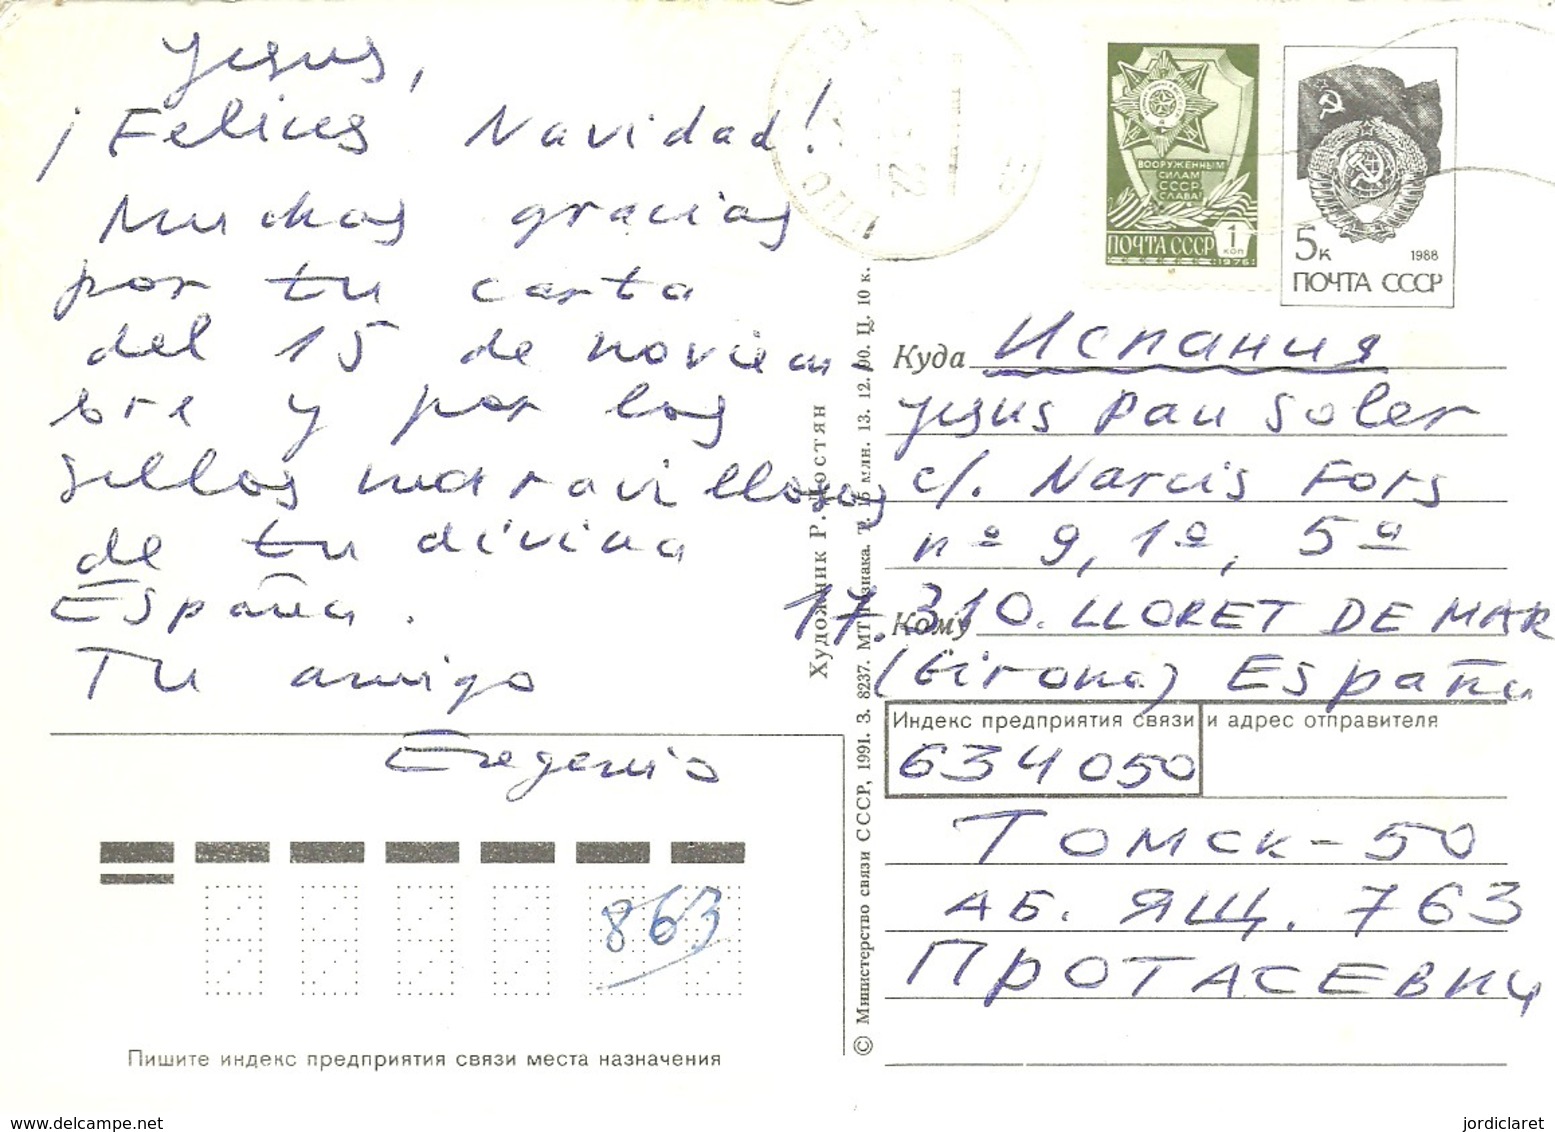 Jesus,
¡Felices Navidad!
Muchas gracias
por tu carta
del 15 de noviem-
bre y por los
sellos maravillosos
de tu divina
España.
Tu amigo
Eugenio
863
Пишите индекс предприятия связи места назначения
Художник Р. Достян
© Министерство связи СССР, 1991. З. 8237. МТ Гознака. Т. 15 млн. 13. 12. 90. Ц. 10 к.
ВООРУЖЕННЫМ
СИЛАМ
СССР
СЛАВА!
ПОЧТА СССР
1
КОП
1976
5к
1988
ПОЧТА СССР
Куда Испания
Jesus Pau Soler
c/. Narcis Fors
nº 9, 1º, 5ª
Кому 17.310. LLORET DE MAR
(Girona) España
Индекс предприятия связи и адрес отправителя
634050
ТОМСК-50
АБ. ЯЩ. 763
ПРОТАСЕВИЧ
jordiclaret